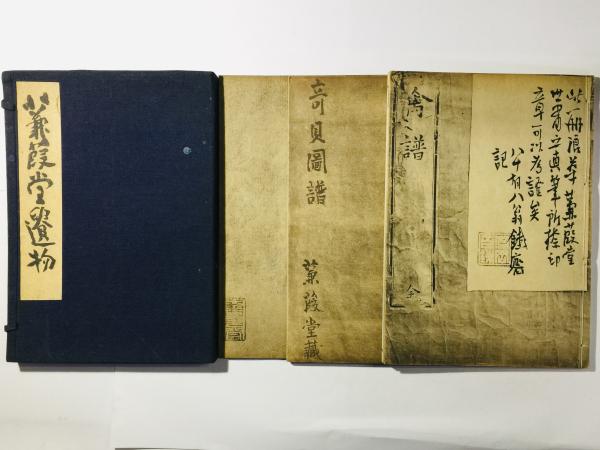 此册浪華蒹葭堂
世肅之真筆所捺印
章可以考證矣
八十有八翁鐵齋
記
禽譜
全
竒貝圖譜
蒹葭堂藏
蒹葭堂遺物